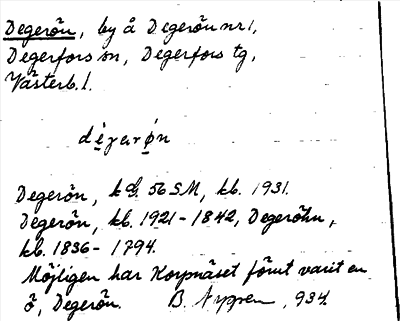 Degerön, by å Degerön nr 1,
Degerfors sn, Degerfors tg,
Västerb. l.
Degerön, k 56 SM, kb. 1931.
Degerön, kb. 1921-1842, Degeröhn,
kb. 1836-1794.
Möjligen har Korpnäset förut varit en
ö, Degerön. B. Nygren, 934.